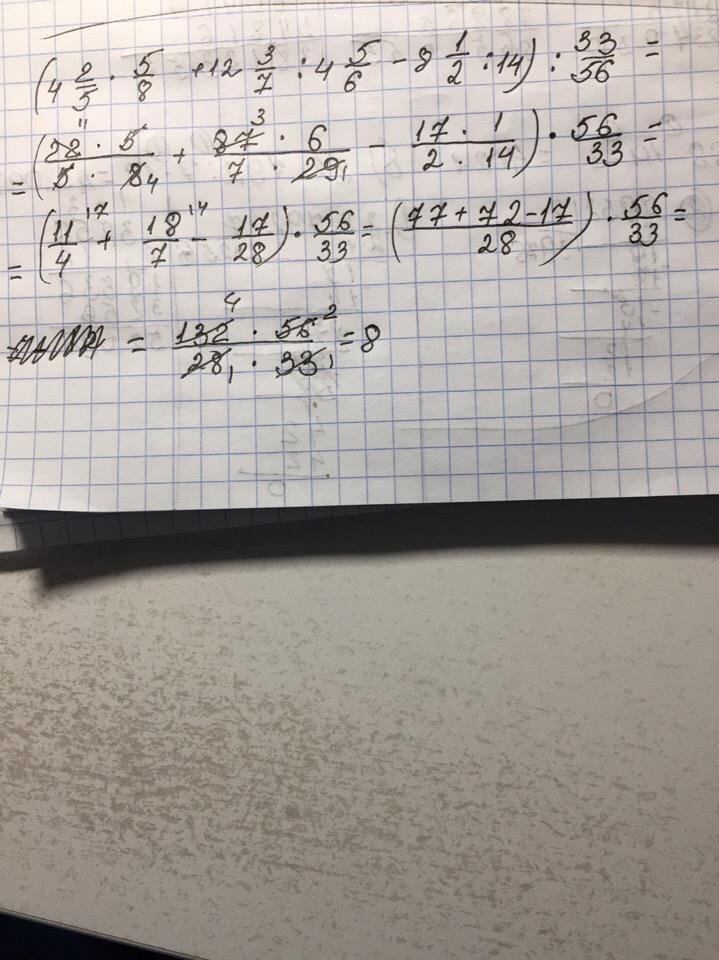 (4 2/5 · 5/8 + 12 3/7 : 4 5/6 - 8 1/2 : 14) : 33/56 =
= (22 11 · 5 / 5 · 8 4 + 87 3 · 6 / 7 · 29 1 - 17 · 1 / 2 · 14) · 56/33 =
= (11/4 17 + 18/7 14 - 17/28) · 56/33 = (77 + 72 - 17 / 28) · 56/33 =
= 132 4 · 56 2 / 28 1 · 33 1 = 8